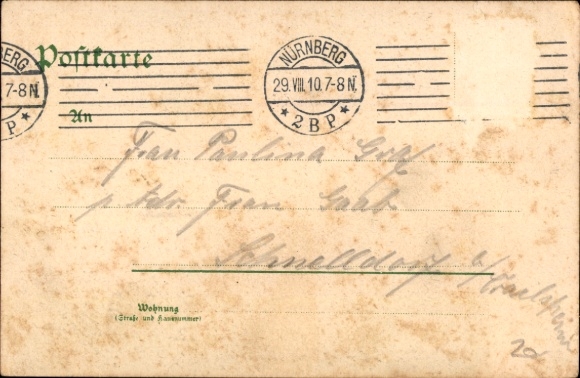 Postkarte
NÜRNBERG
29.VIII.10.7-8N.
* 2BP *
ERG
7-8N
P *
An
Frau Paulina Graf
p. Adr. Frau Graab
Schnelldorf b/Crailsheim
Wohnung
(Straße und Hausnummer)
20